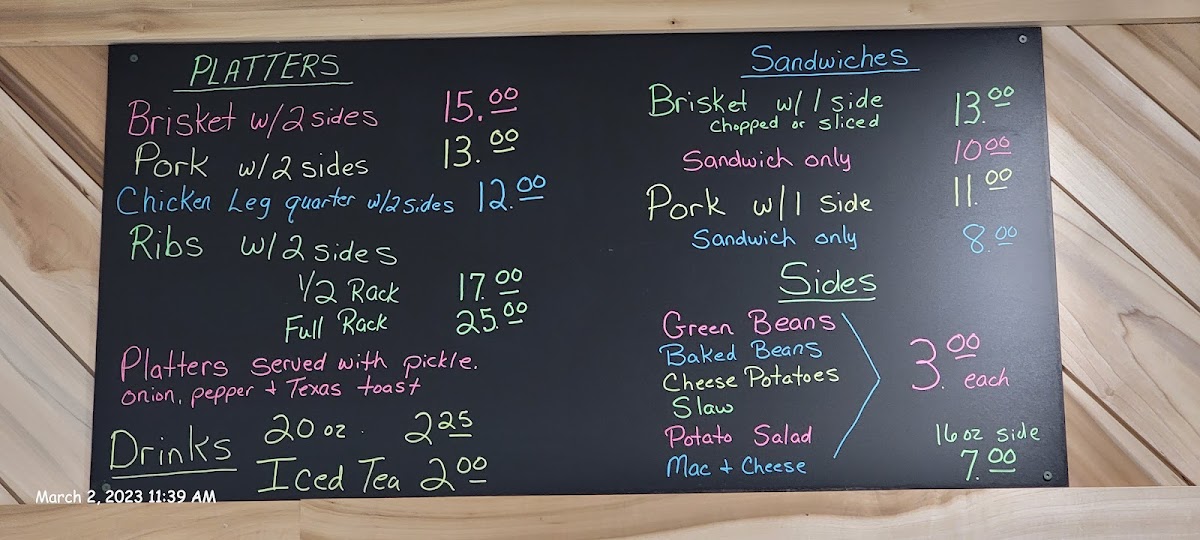 PLATTERS
Brisket w/2 sides 15.00
Pork w/2 sides 13.00
Chicken Leg quarter w/2 sides 12.00
Ribs w/2 sides
1/2 Rack 17.00
Full Rack 25.00
Platters served with pickle.
onion, pepper + Texas toast
Drinks
20 oz. 2 25
Iced Tea 2 00
Sandwiches
Brisket w/ 1 side 13.00
chopped or sliced
Sandwich only 10 00
Pork w/1 side 11.00
Sandwich only 8.00
Sides
Green Beans
Baked Beans
Cheese Potatoes
Slaw
Potato Salad
Mac + Cheese
3.00
each
16 oz side
7.00
March 2, 2023 11:39 AM